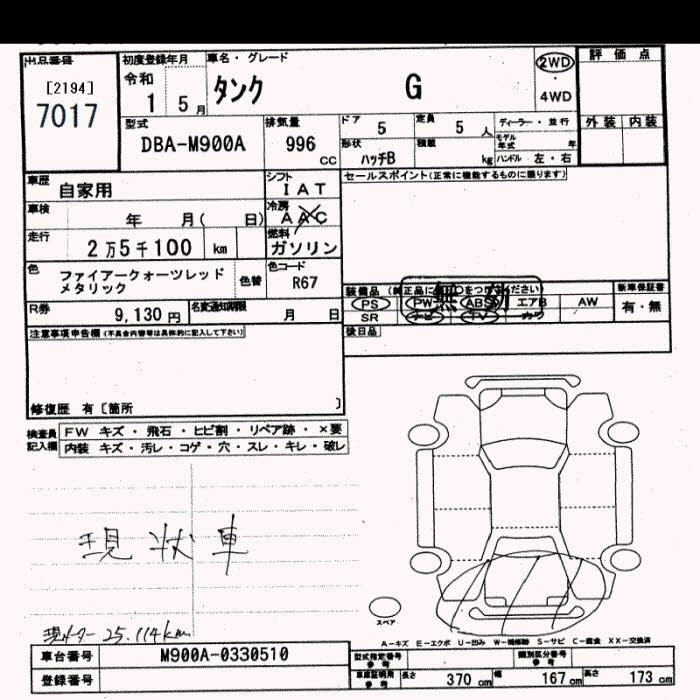 出品番号
[2194]
7017
初度登録年月
令和
1 5月
車名・グレード
タンク G
2WD
・
4WD
評価点
外装 内装
型式
DBA-M900A
排気量
996
cc
ドア
5
定員
5 人
形状
ハッチB
積載
kg
ディーラー・並行
モデル年式 年
ハンドル 左・右
車歴
自家用
シフト
IAT
セールスポイント(正常に機能するものに限ります)
車検
年 月( 日)
冷房
AAC
走行
2万5千100 km
燃料
ガソリン
色
ファイアークォーツレッド
メタリック
色替
色コード
R67
装備品(純正品に限り○をつけて下さい)
PS PW ABS エアB AW
SR ナビ TV カワ
新車保証書
有・無
R券
9,130円
名変通知期限
月 日
後日品
注意事項申告欄(不具合内容等は具体的に記入して下さい)
修復歴 有〔箇所 〕
検査員記入欄
FW キズ・飛石・ヒビ割・リペア跡・×要
内装 キズ・汚レ・コゲ・穴・スレ・キレ・破レ
現状車
現メーター 25,114km
スペア
A-キズ E-エクボ U-凹み W-補修跡 S-サビ C-腐食 XX-交換済
車台番号
M900A-0330510
登録番号
型式指定番号
参考
類別区分番号
参考
車庫証明用
参考
長さ 370 cm
幅 167 cm
高さ 173 cm